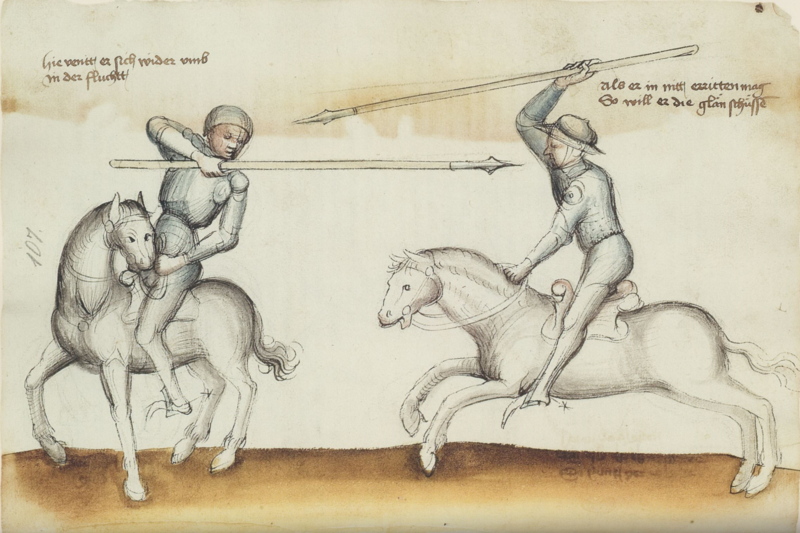 hie wentt er sich wider umb
in der fluchtt
als er in nitt erritten mag
So will er die glän schüsse
107.